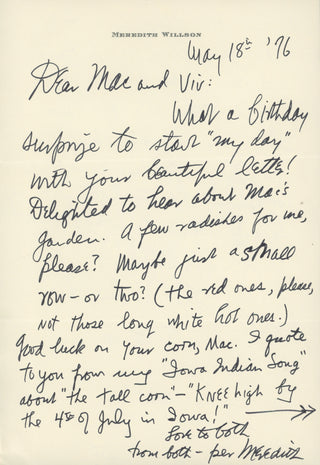 MEREDITH WILLSON
May 18th '76
Dear Mac and Viv:
What a birthday
surprize to start "my day"
with your beautiful letter!
Delighted to hear about Mac's
garden. A few radishes for me,
please? Maybe just a small
row - or two? (the red ones, please,
not those long white hot ones.)
Good luck on your corn, Mac. I quote
to you from my "Iowa Indian Song"
about "the tall corn" - "KNEE high by
the 4th of July in Iowa!"
Love to both
from both - per Meredith